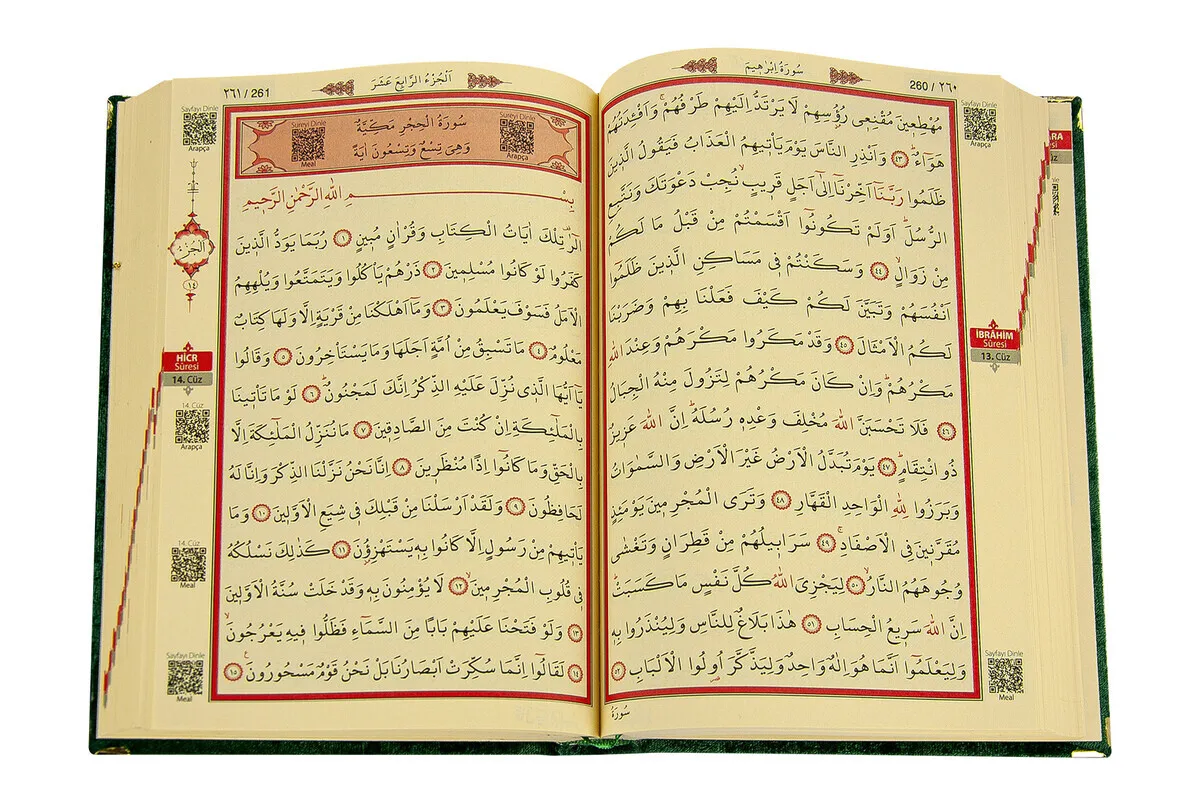 سُورَةُ اِبْرٰه۪يمَ
260 / ٢٦٠
مُهْطِع۪ينَ مُقْنِع۪ي رُؤُ۫سِهِمْ لَا يَرْتَدُّ اِلَيْهِمْ طَرْفُهُمْۚ وَاَفْـِٔدَتُهُمْ
هَوَٓاءٌۜ ٤٣ وَاَنْذِرِ النَّاسَ يَوْمَ يَأْت۪يهِمُ الْعَذَابُ فَيَقُولُ الَّذ۪ينَ
ظَلَمُوا رَبَّنَٓا اَخِّرْنَٓا اِلٰٓى اَجَلٍ قَر۪يبٍۙ نُجِبْ دَعْوَتَكَ وَنَتَّبِعِ
الرُّسُلَۜ اَوَلَمْ تَكُونُٓوا اَقْسَمْتُمْ مِنْ قَبْلُ مَا لَكُمْ
مِنْ زَوَالٍۙ ٤٤ وَسَكَنْتُمْ ف۪ي مَسَاكِنِ الَّذ۪ينَ ظَلَمُٓوا
اَنْفُسَهُمْ وَتَبَيَّنَ لَكُمْ كَيْفَ فَعَلْنَا بِهِمْ وَضَرَبْنَا
لَكُمُ الْاَمْثَالَ ٤٥ وَقَدْ مَكَرُوا مَكْرَهُمْ وَعِنْدَ اللّٰهِ
مَكْرُهُمْۜ وَاِنْ كَانَ مَكْرُهُمْ لِتَزُولَ مِنْهُ الْجِبَالُ
٤٦ فَلَا تَحْسَبَنَّ اللّٰهَ مُخْلِفَ وَعْدِه۪ رُسُلَهُۜ اِنَّ اللّٰهَ عَز۪يزٌ
ذُو انْتِقَامٍۜ ٤٧ يَوْمَ تُبَدَّلُ الْاَرْضُ غَيْرَ الْاَرْضِ وَالسَّمٰوَاتُ
وَبَرَزُوا لِلّٰهِ الْوَاحِدِ الْقَهَّارِ ٤٨ وَتَرَى الْمُجْرِم۪ينَ يَوْمَئِذٍ
مُقَرَّن۪ينَ فِي الْاَصْفَادِۚ ٤٩ سَرَاب۪يلُهُمْ مِنْ قَطِرَانٍ وَتَغْشٰى
وُجُوهَهُمُ النَّارُۙ ٥٠ لِيَجْزِيَ اللّٰهُ كُلَّ نَفْسٍ مَا كَسَبَتْۜ
اِنَّ اللّٰهَ سَر۪يعُ الْحِسَابِ ٥١ هٰذَا بَلَاغٌ لِلنَّاسِ وَلِيُنْذَرُوا بِه۪
وَلِيَعْلَمُٓوا اَنَّمَا هُوَ اِلٰهٌ وَاحِدٌ وَلِيَذَّكَّرَ اُو۬لُوا الْاَلْبَابِ ٥٢
سُورَةُ
Sayfayı Dinle
Arapça
İBRÂHÎM
Sûresi
13. Cüz
Sayfayı Dinle
Meal
٢٦١ / 261
اَلْجُزْءُ الرَّابِعُ عَشَرَ
سُورَةُ الْحِجْرِ مَكِّيَّةٌ
وَهِيَ تِسْعٌ وَتِسْعُونَ اٰيَةً
Sureyi Dinle
Arapça
Sureyi Dinle
Meal
بِسْمِ اللّٰهِ الرَّحْمٰنِ الرَّح۪يمِ
الٓرٰ۠ تِلْكَ اٰيَاتُ الْكِتَابِ وَقُرْاٰنٍ مُب۪ينٍ ١ رُبَمَا يَوَدُّ الَّذ۪ينَ
كَفَرُوا لَوْ كَانُوا مُسْلِم۪ينَ ٢ ذَرْهُمْ يَأْكُلُوا وَيَتَمَتَّعُوا وَيُلْهِهِمُ
الْاَمَلُ فَسَوْفَ يَعْلَمُونَ ٣ وَمَٓا اَهْلَكْنَا مِنْ قَرْيَةٍ اِلَّا وَلَهَا كِتَابٌ
مَعْلُومٌ ٤ مَا تَسْبِقُ مِنْ اُمَّةٍ اَجَلَهَا وَمَا يَسْتَأْخِرُونَ ٥ وَقَالُوا
يَٓا اَيُّهَا الَّذ۪ي نُزِّلَ عَلَيْهِ الذِّكْرُ اِنَّكَ لَمَجْنُونٌۜ ٦ لَوْ مَا تَأْت۪ينَا
بِالْمَلٰٓئِكَةِ اِنْ كُنْتَ مِنَ الصَّادِق۪ينَ ٧ مَا نُنَزِّلُ الْمَلٰٓئِكَةَ اِلَّا
بِالْحَقِّ وَمَا كَانُٓوا اِذًا مُنْظَر۪ينَ ٨ اِنَّا نَحْنُ نَزَّلْنَا الذِّكْرَ وَاِنَّا لَهُ
لَحَافِظُونَ ٩ وَلَقَدْ اَرْسَلْنَا مِنْ قَبْلِكَ ف۪ي شِيَعِ الْاَوَّل۪ينَ ١٠ وَمَا
يَأْت۪يهِمْ مِنْ رَسُولٍ اِلَّا كَانُوا بِه۪ يَسْتَهْزِؤُ۫نَ ١١ كَذٰلِكَ نَسْلُكُهُ
ف۪ي قُلُوبِ الْمُجْرِم۪ينَۙ ١٢ لَا يُؤْمِنُونَ بِه۪ وَقَدْ خَلَتْ سُنَّةُ الْاَوَّل۪ينَ
١٣ وَلَوْ فَتَحْنَا عَلَيْهِمْ بَابًا مِنَ السَّمَٓاءِ فَظَلُّوا ف۪يهِ يَعْرُجُونَۙ
١٤ لَقَالُٓوا اِنَّمَا سُكِّرَتْ اَبْصَارُنَا بَلْ نَحْنُ قَوْمٌ مَسْحُورُونَ۟ ١٥
Sayfayı Dinle
Arapça
اَلْجُزْءُ
١٤
HİCR
Sûresi
14. Cüz
14. Cüz
Arapça
14. Cüz
Meal
Sayfayı Dinle
Meal